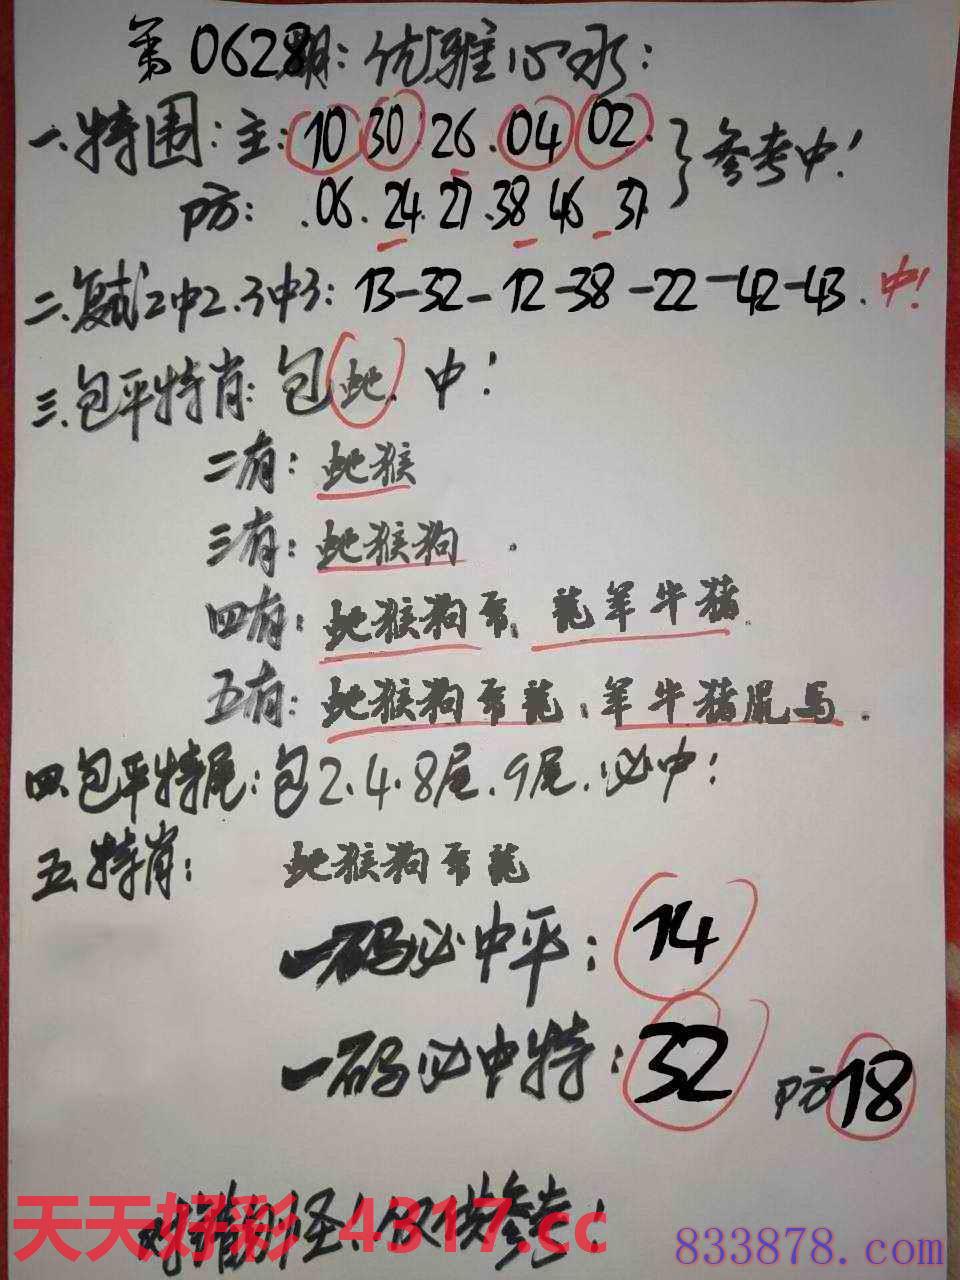 第0628期:优雅心水:
一.特围:主:10 30 26.04 02.}参考中!
防:.06.24.27.38 46.37
二.复试2中2.3中3:13-32-12-38-22-42-43.中!
三.包平特肖:包蛇.中!
二有:蛇猴
三有:蛇猴狗.
四有:蛇猴狗兔.龍羊牛猪.
五有:蛇猴狗兔龍;羊牛猪鼠马.
四.包平特尾:包2.4.8尾.9尾.必中!
五.特肖:蛇猴狗兔龍
一码必中平:14
一码必中特:32 防18
对错勿怪!仅供参考!
天天好彩 4317.cc
833878.com